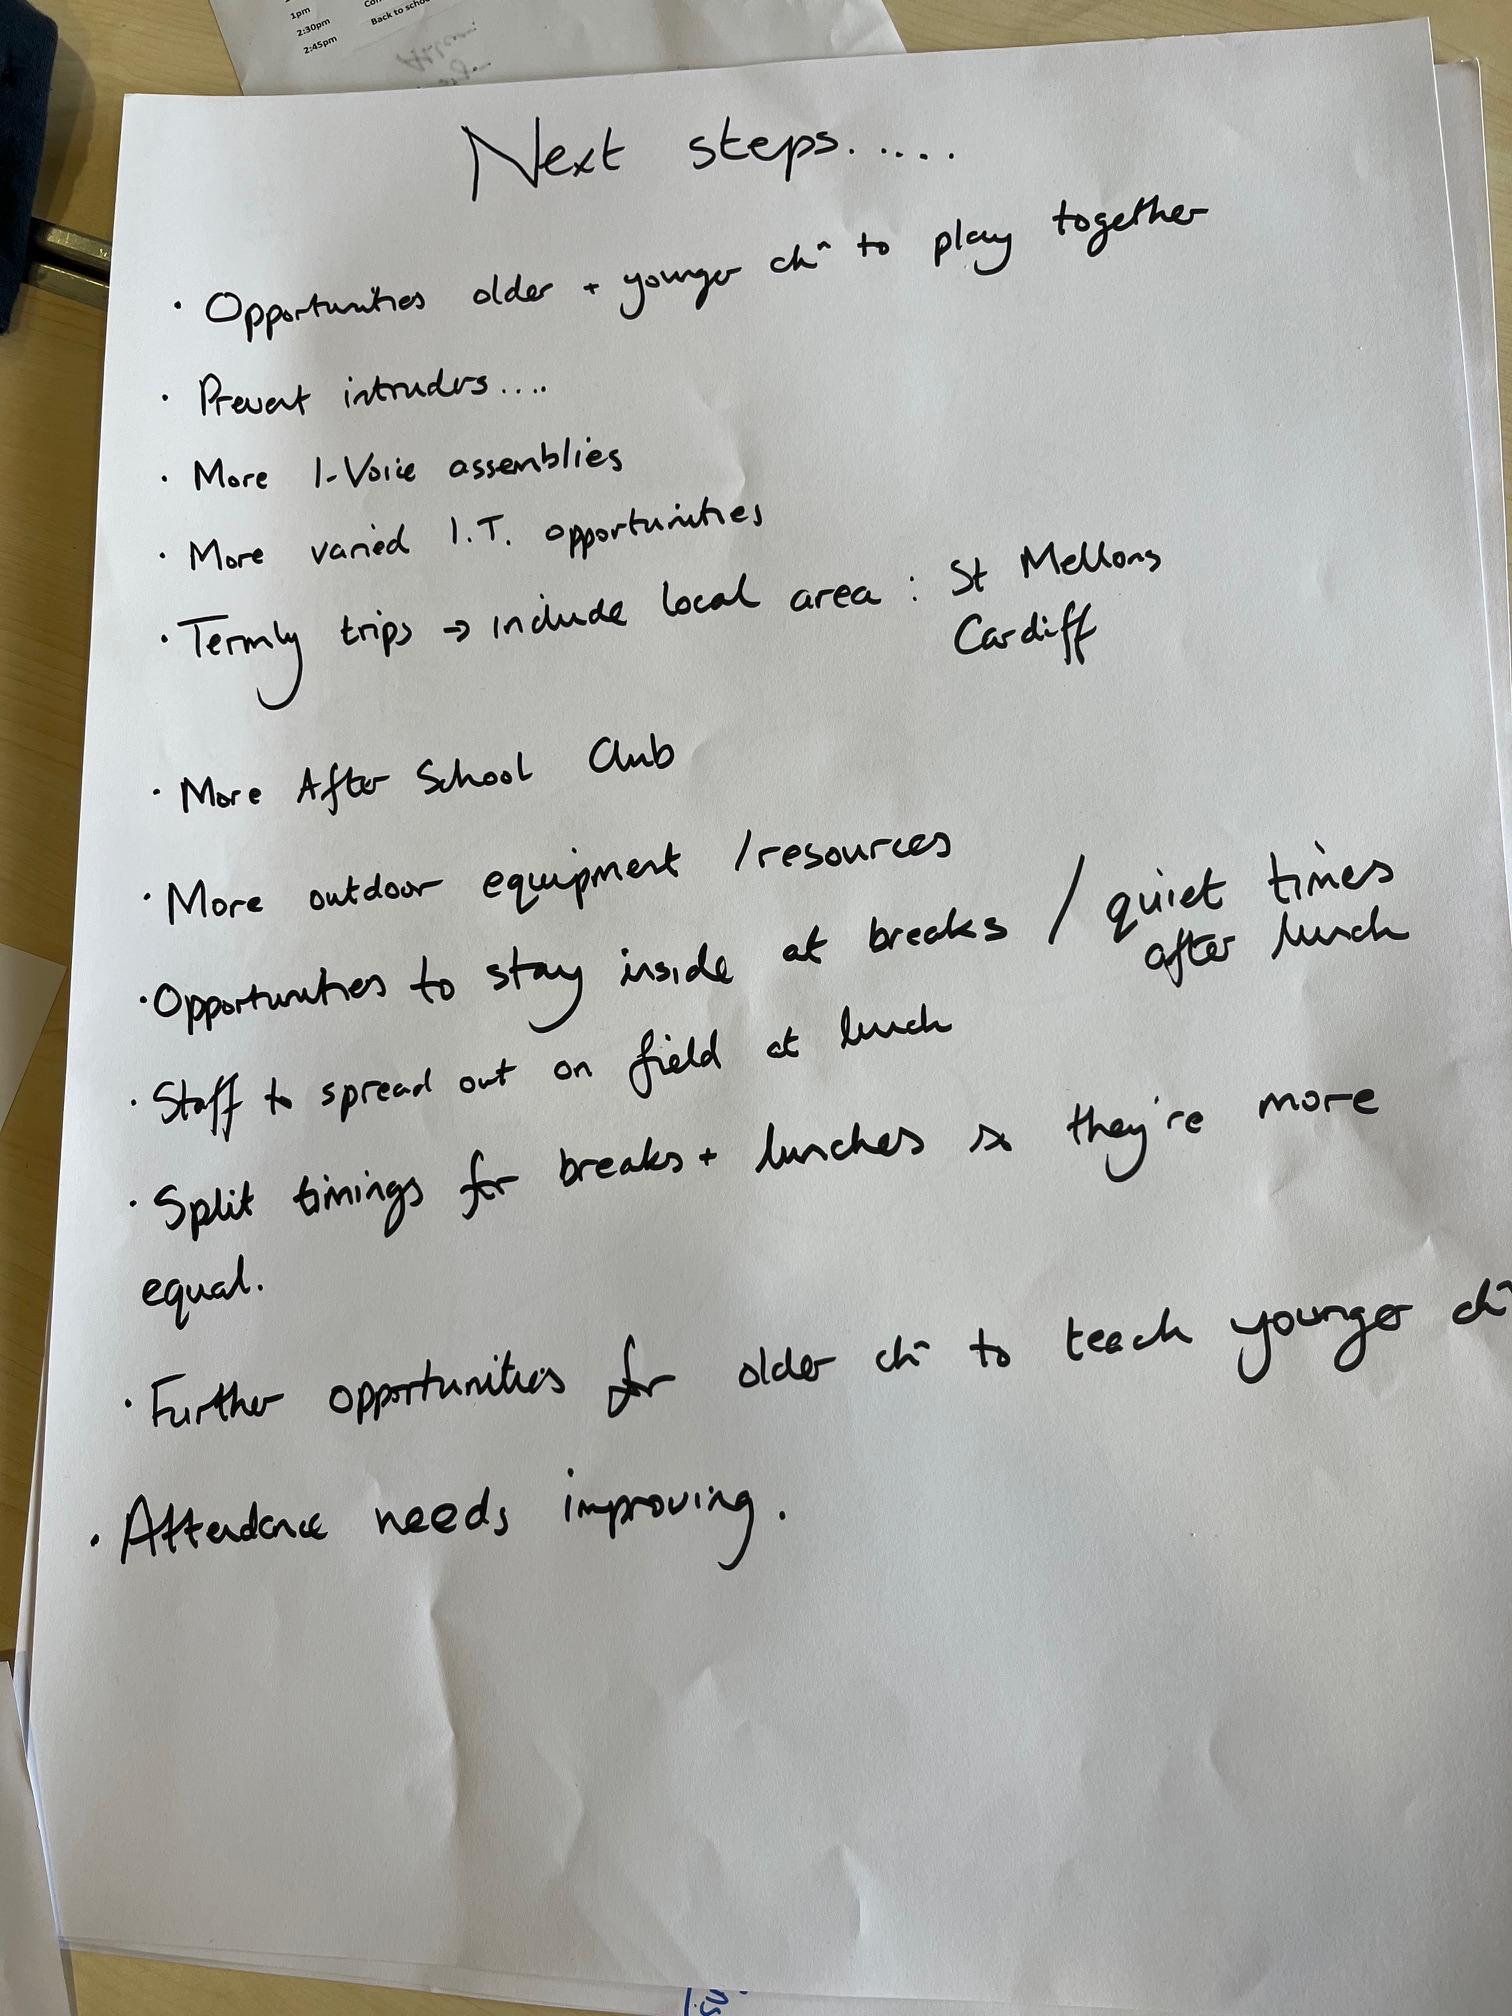 1pm
2:30pm
2:45pm Back to scho
Next steps.....
· Opportunities older + younger chn to play together
· Prevent intruders....
· More I-Voice assemblies
· More varied I.T. opportunities
· Termly trips → include local area : St Mellons
Cardiff
· More After School Club
· More outdoor equipment / resources
· Opportunities to stay inside at breaks / quiet times
after lunch
· Staff to spread out on field at lunch
· Split timings for breaks + lunches so they're more
equal.
· Further opportunities for older chn to teach younger chn
· Attendance needs improving.